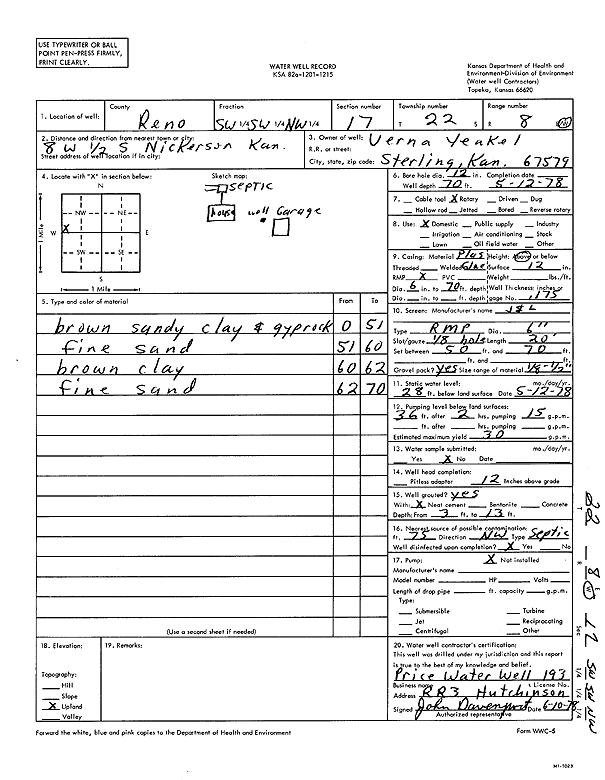 USE TYPEWRITER OR BALL
POINT PEN-PRESS FIRMLY,
PRINT CLEARLY.
WATER WELL RECORD
KSA 82a-1201-1215
Kansas Department of Health and
Environment-Division of Environment
(Water well Contractors)
Topeka, Kansas 66620
1. Location of well: County Reno Fraction SW 1/4 SW 1/4 NW 1/4 Section number 17 Township number T 22 S Range number R 8 E/W
2. Distance and direction from nearest town or city: 8 W 1/2 S Nickerson Kan.
Street address of well location if in city:
3. Owner of well: Verna Yeakel
R.R. or street:
City, state, zip code: Sterling, Kan. 67579
4. Locate with "X" in section below:
N
NW NE
W X E
SW SE
S
1 Mile
1 Mile
Sketch map:
SEPTIC
house well Garage
6. Bore hole dia. 12 in. Completion date
Well depth 70 ft. 5-12-78
7. Cable tool X Rotary Driven Dug
Hollow rod Jetted Bored Reverse rotary
8. Use: X Domestic Public supply Industry
Irrigation Air conditioning Stock
Lawn Oil field water Other
9. Casing: Material Plas Height: Above or below
Threaded Welded Glue Surface 12 in.
RMP X PVC Weight lbs./ft.
Dia. 6 in. to 70 ft. depth Wall Thickness: inches or
Dia. in. to ft. depth gage No. .175
5. Type and color of material From To
brown sandy clay & gyprock 0 51
fine sand 51 60
brown clay 60 62
fine sand 62 70
10. Screen: Manufacturer's name J & L
Type RMP Dia. 6"
Slot/gauze 1/8 hole Length 20'
Set between 50 ft. and 70 ft.
ft. and ft.
Gravel pack? yes Size range of material 1/8-1/2"
11. Static water level: mo./day/yr.
28 ft. below land surface Date 5-12-78
12. Pumping level below land surfaces:
36 ft. after 2 hrs. pumping 15 g.p.m.
ft. after hrs. pumping g.p.m.
Estimated maximum yield 30 g.p.m.
13. Water sample submitted: mo./day/yr.
Yes X No Date
14. Well head completion:
Pitless adapter 12 Inches above grade
15. Well grouted? yes
With: X Neat cement Bentonite Concrete
Depth: From 3 ft. to 13 ft.
16. Nearest source of possible contamination:
ft. 75 Direction NW Type Septic
Well disinfected upon completion? X Yes No
17. Pump: X Not installed
Manufacturer's name
Model number HP Volts
Length of drop pipe ft. capacity g.p.m.
Type:
Submersible Turbine
Jet Reciprocating
Centrifugal Other
(Use a second sheet if needed)
18. Elevation:
Topography:
Hill
Slope
X Upland
Valley
19. Remarks:
20. Water well contractor's certification:
This well was drilled under my jurisdiction and this report
is true to the best of my knowledge and belief.
Price Water Well 193
Business name License No.
Address RR3 Hutchinson
Signed John Davenport Date 6-10-78
Authorized representative
Forward the white, blue and pink copies to the Department of Health and Environment
Form WWC-5
T 22
R 8 E W
Sec 17
1/4 1/4 1/4 SW SW NW